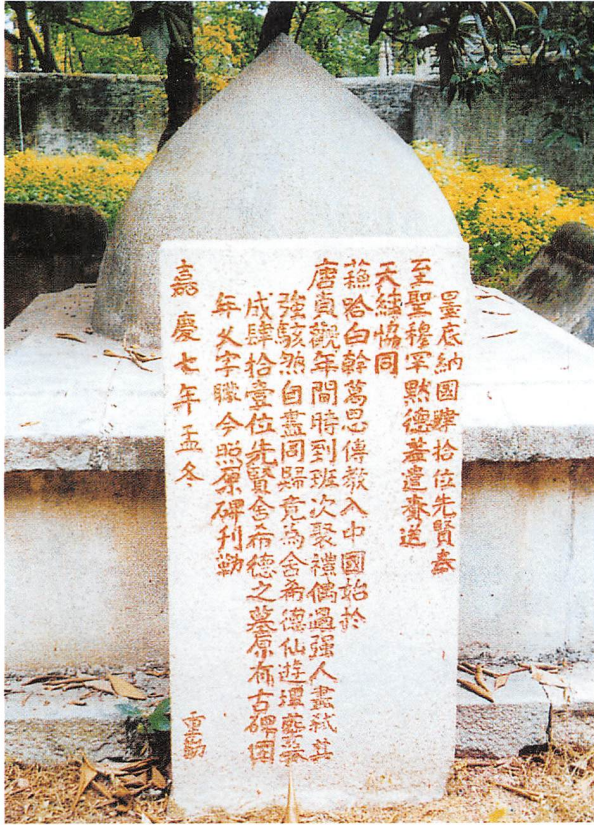 墨底納國肆拾位先賢奉
至聖穆罕黙德羞遣賫送
天經協同
蘓哈白幹萬思傳教入中國始於
唐貞觀年間時到班次聚禮偶遇强人盡弒其
強駭然自盡同歸竟為舍希德仙遊塟
成肆拾壹位先賢舍希德之墓原有古碑因
年久字矇今照原碑刊勒
嘉慶七年孟冬
重勒